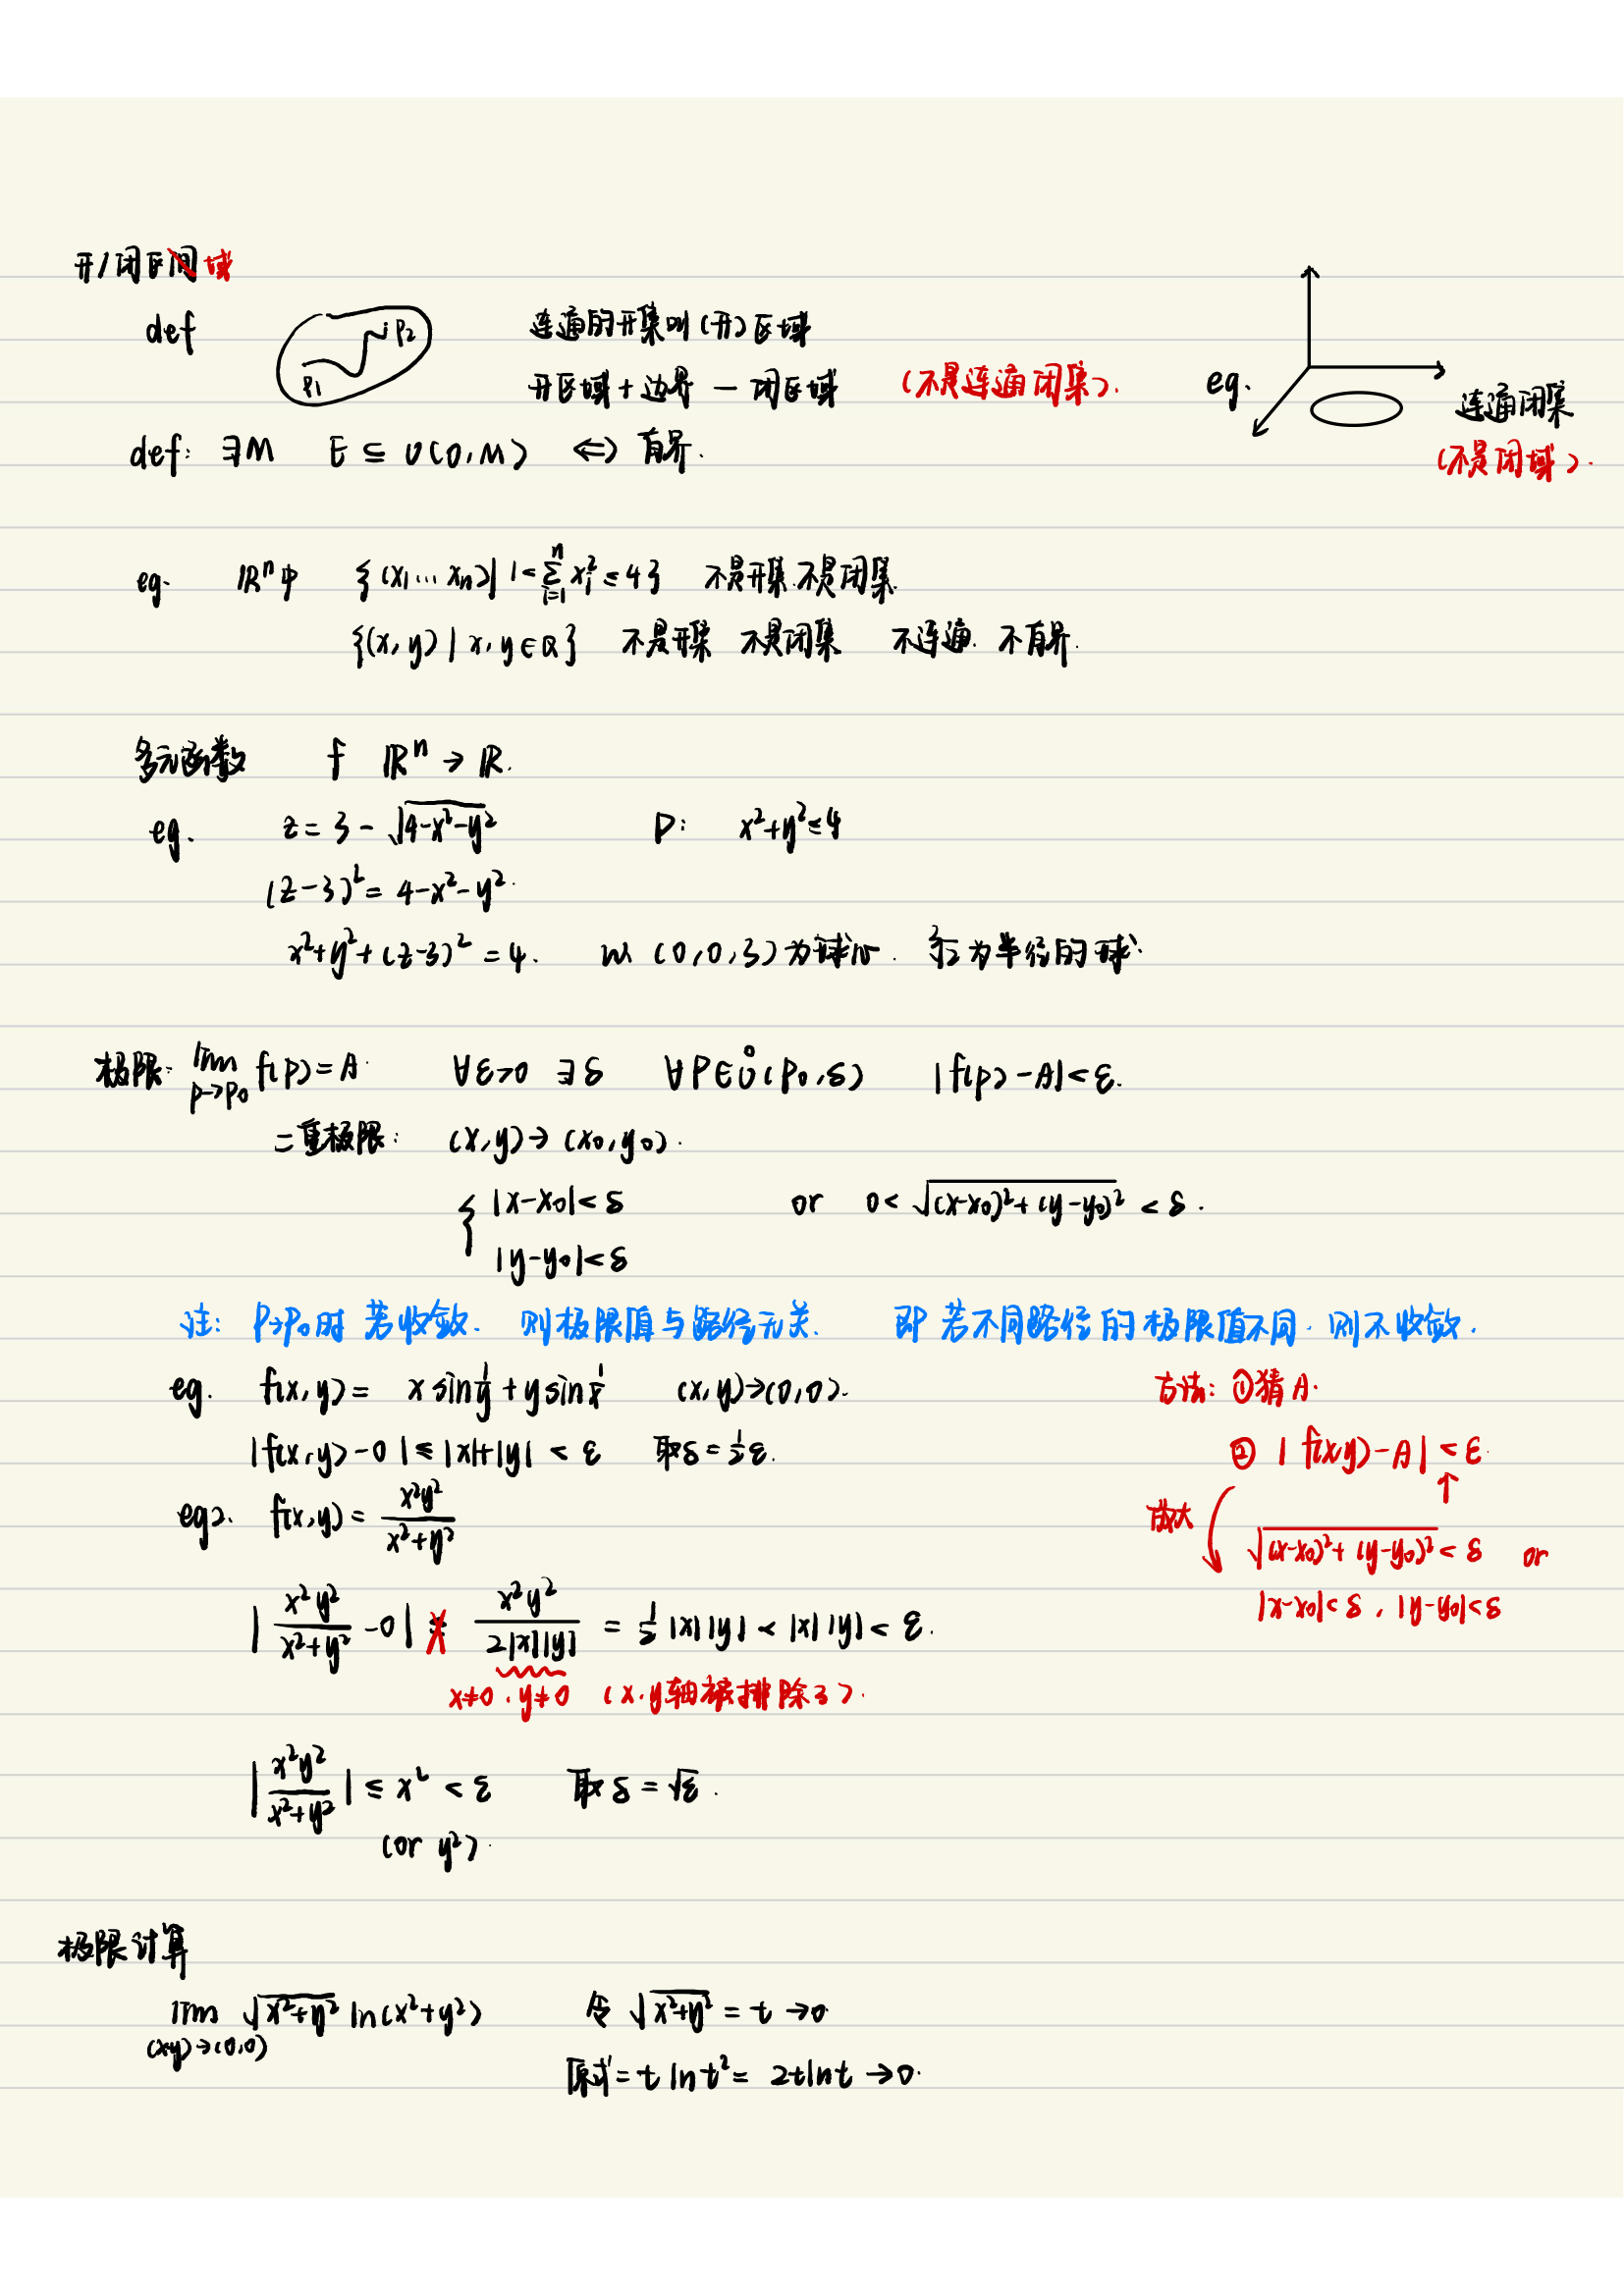 开/闭区间 域
def P1 P2 连通的开集叫(开)区域
开区域+边界 — 闭区域 (不是连通闭集).
eg. 连通闭集
(不是闭域).
def: ∃M E ⊆ U(0,M) ⇔ 有界.
eg. ℝⁿ中 {(x₁…xₙ)| 1<∑ᵢ₌₁ⁿ xᵢ² ≤4} 不是开集.不是闭集.
{(x,y)|x,y∈Q} 不是开集 不是闭集 不连通. 不有界.
多元函数 f ℝⁿ→ℝ.
eg. z=3-√(4-x²-y²) D: x²+y²≤4
(z-3)²=4-x²-y².
x²+y²+(z-3)²=4. 以(0,0,3)为球心. 2为半径的球.
极限: lim_{p→p₀} f(p)=A. ∀ε>0 ∃δ ∀P∈Ů(P₀,δ) |f(p)-A|<ε.
二重极限: (x,y)→(x₀,y₀).
{ |x-x₀|<δ or 0<√((x-x₀)²+(y-y₀)²)<δ.
|y-y₀|<δ
注: P→P₀时 若收敛. 则极限值与路径无关. 即若不同路径的极限值不同.则不收敛.
eg. f(x,y)= x sin 1/y + y sin 1/x (x,y)→(0,0).
|f(x,y)-0|≤|x|+|y|<ε 取δ=½ε.
eg2. f(x,y)= x²y²/(x²+y²)
方法: ①猜A.
② |f(x,y)-A|<ε.
↑
放大 √((x-x₀)²+(y-y₀)²)<δ or
|x-x₀|<δ, |y-y₀|<δ
|x²y²/(x²+y²) -0| ≤ x²y²/(2|x||y|) = ½|x||y|<|x||y|<ε.
x≠0. y≠0 (x.y轴被排除了).
|x²y²/(x²+y²)| ≤x²<ε 取δ=√ε.
(or y²).
极限计算
lim_{(x,y)→(0,0)} √(x²+y²) ln(x²+y²) 令√(x²+y²)=t→0.
原式=t ln t²= 2t ln t →0.